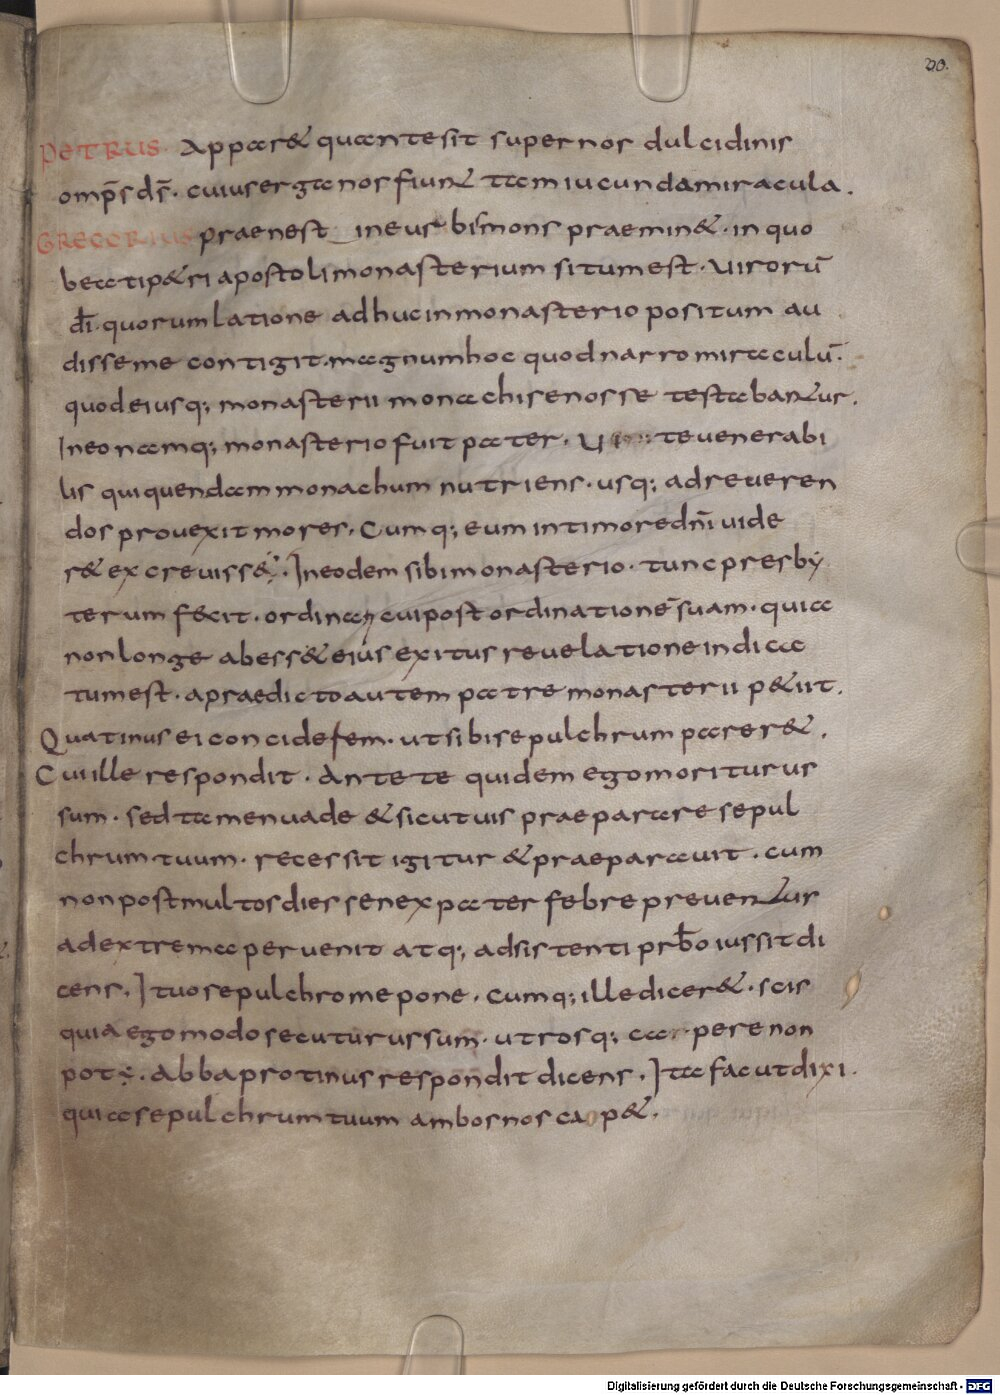 20.
PETRUS. Appar& quantesit supernos dulcidinis
omps̄ ds̄. cuiuserganosfiunt tamiucundamiracula.
GREGORIUS praenest ineus bismons praemin&. in quo
beatip&ri apostolimonasterium situmest. Uirorū
dī. quorumlatione adhucinmonasterio positum au
disseme contigit. magnumhoc quodnarromiraculū.
quodeiusq; monasterii monachisenosse testabantur.
Ineonamq; monasteriofuit pater. teuenerabi
lis quiquendam monachum nutriens. usq; adreueren
dos prouexitmores. Cumq; eum intimoredn̄i uide
r& excreuiss&. Ineodem sibimonasterio. tuncpresby
terum fecit. cuipost ordinationē suam. quia
nonlonge abess& eius exitus reuelationeindica
tumest. apraedictoautem patre monasterii p&iit.
Quatinus ei concideFem. utsibisepulchrum parer&.
Cuiille respondit. Antete quidem egomoriturus
sum. sed tamenuade &sicutuis praeparare sepul
chrum tuum. recessit igitur &praeparauit. cum
nonpostmultosdies senex pater febre preuentur
adextrema peruenit atq; adsistenti prb̄o iussitdi
cens. Ituosepulchromepone. cumq; illedicer&. scis
quia egomodosecuturussum. utrosq; ca pere non
pot&. Abbaprotinus respondit dicens. Ita facutdixi.
quiasepulchrumtuum ambosnos ca p&.
Digitalisierung gefördert durch die Deutsche Forschungsgemeinschaft - DFG